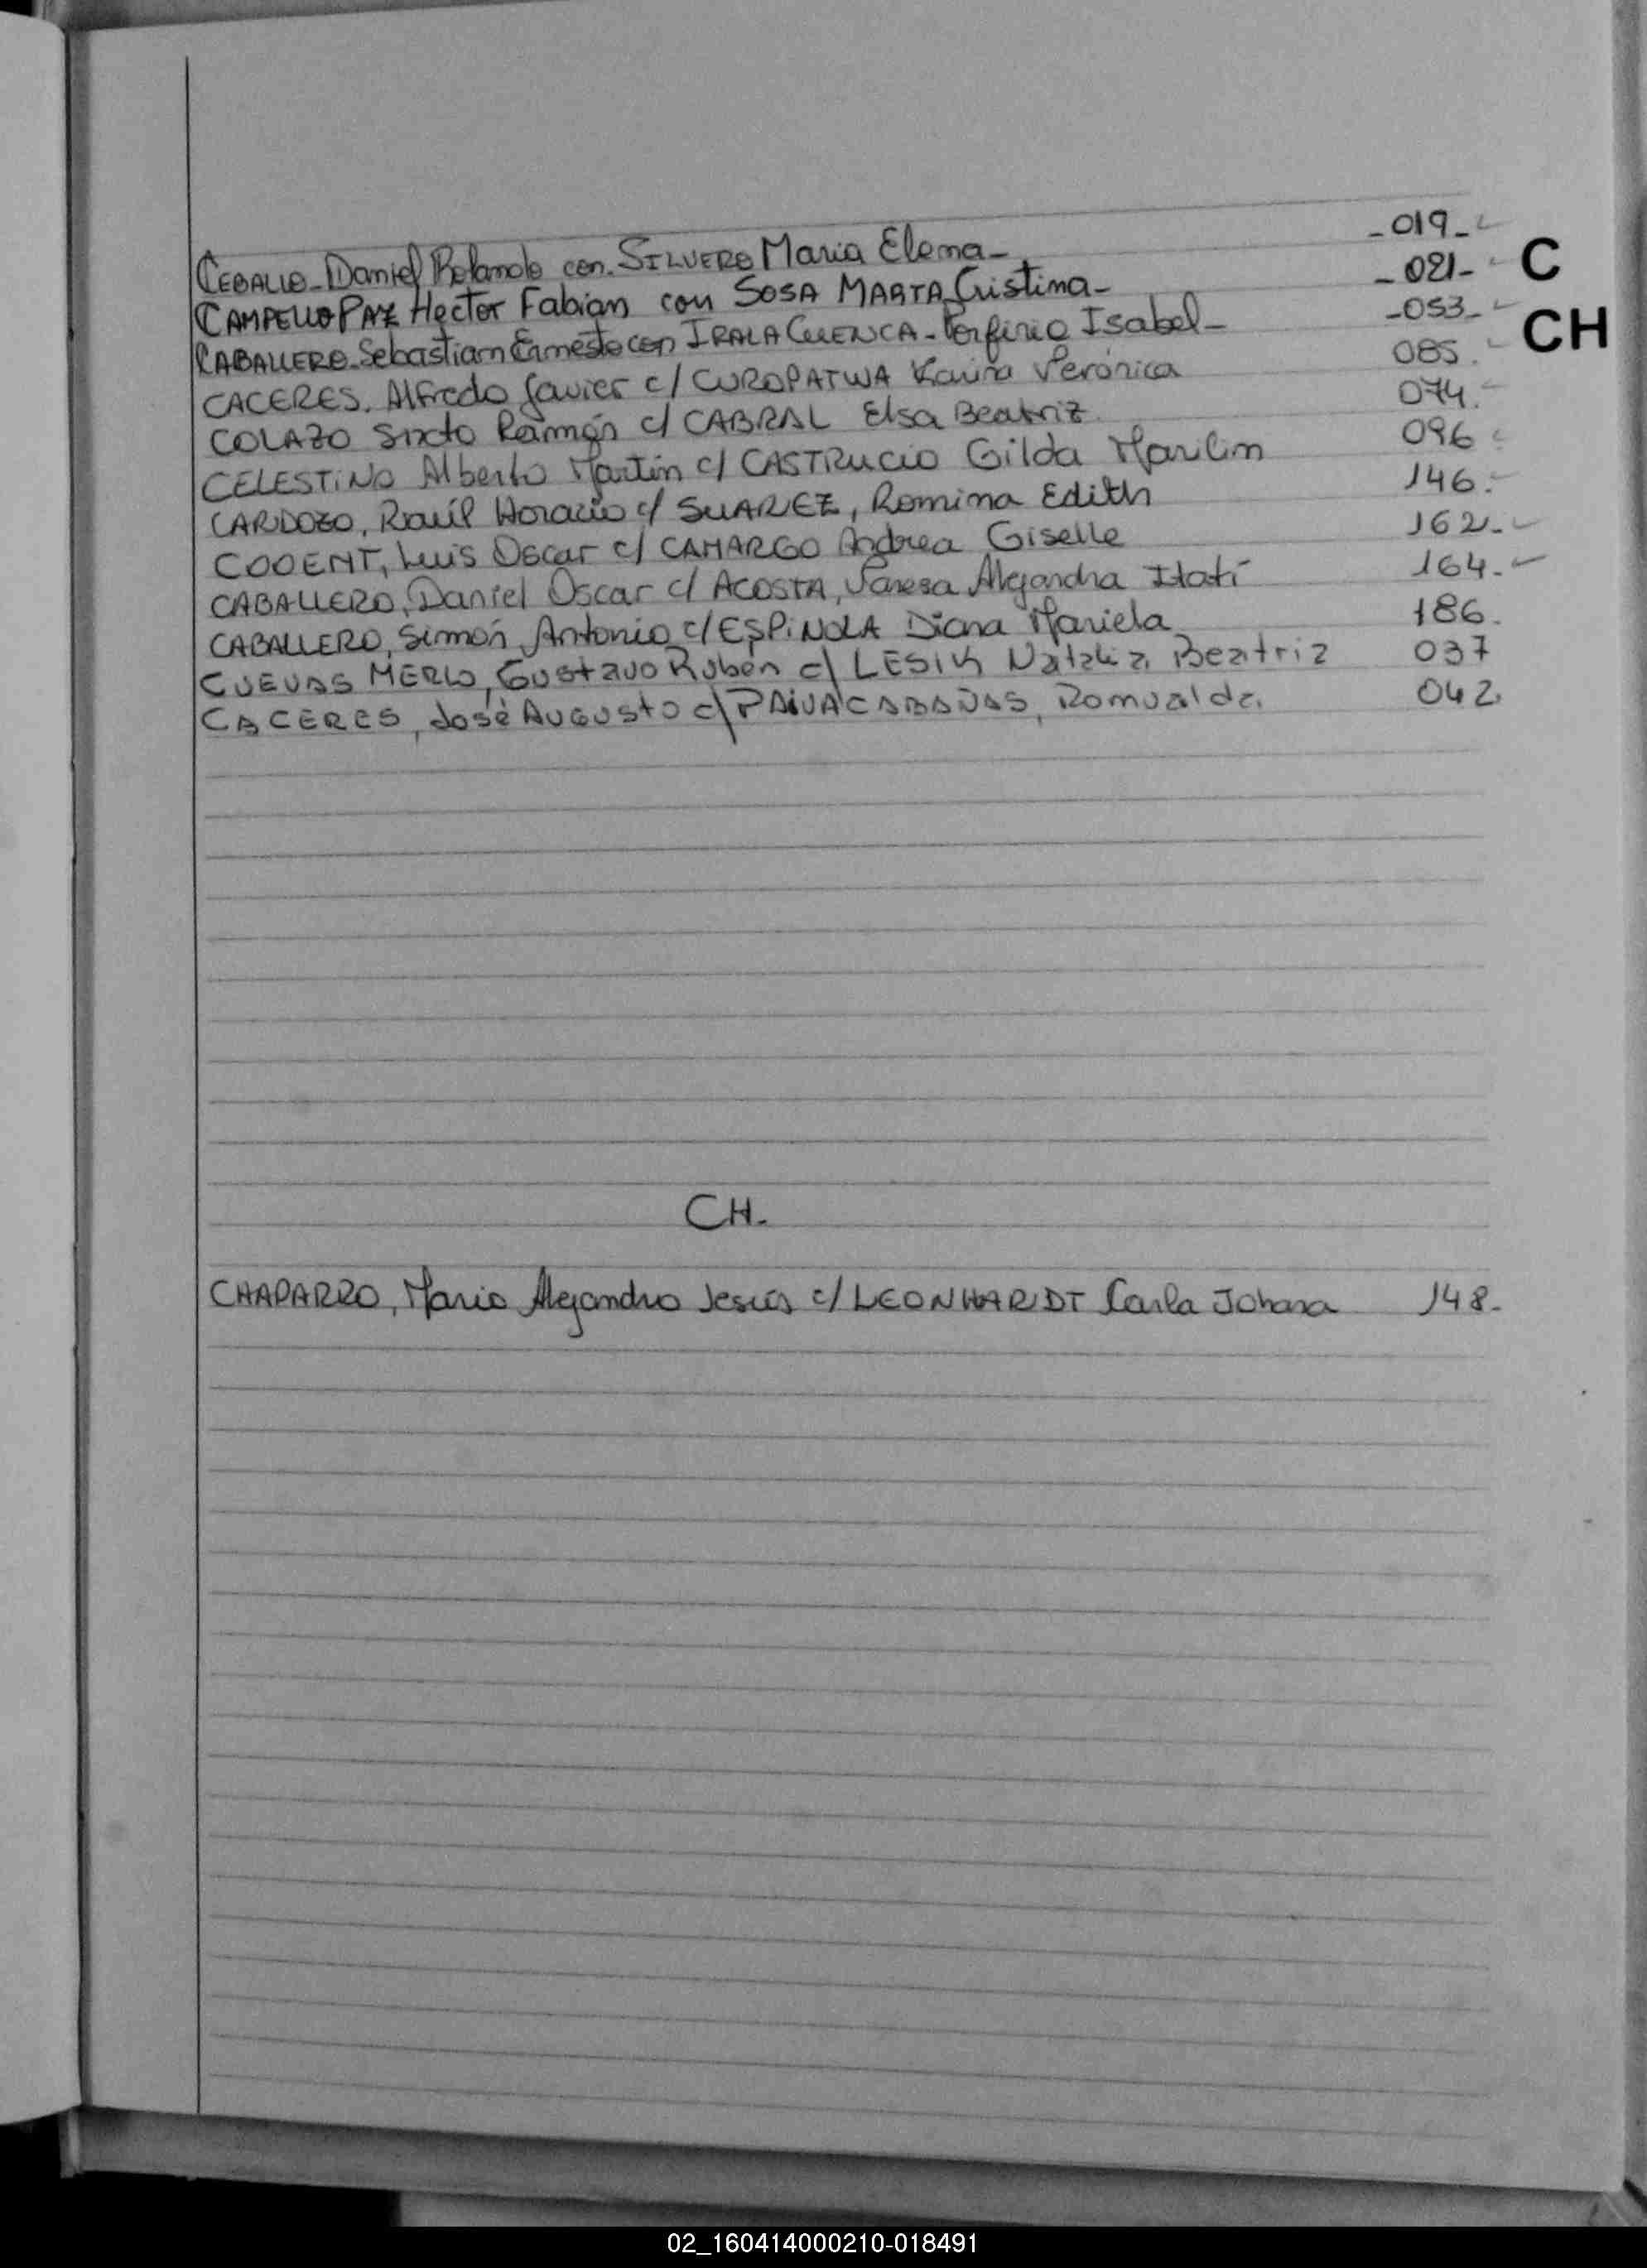 CEBALLO - Daniel Rolando con. SILVERO Maria Elena - - 019 -
CAMPELLO PAZ Hector Fabian con SOSA MARTA Cristina - - 021 -
C
CABALLERO - Sebastian Ernesto con IRALA CUENCA - Porfiria Isabel - - 053 -
CH
CACERES. Alfredo Javier c/ CUROPATWA Karina Verónica 085.
COLAZO Sixto Ramón c/ CABRAL Elsa Beatriz. 074.-
CELESTINO Alberto Martín c/ CASTRUCCIO Gilda Marilin 096
CARDOZO, Raúl Horacio c/ SUAREZ, Romina Edith 146.-
Luis Oscar c/ CAMARGO Andrea Giselle 162.-
CABALLERO, Daniel Oscar c/ ACOSTA, Vanesa Alejandra Itatí 164.-
CABALLERO, Simón Antonio c/ ESPINOLA Diana Mariela 186.
CUEVAS MERLO, Gustavo Rubén c/ LESIK Natalia Beatriz 037
CACERES, José Augusto c/ PAIVA CABAÑAS, Romualda. 042.
CH.
CHAPARRO, Mario Alejandro Jesús c/ LEONHARDT Carla Johana 148.-
02_160414000210-018491